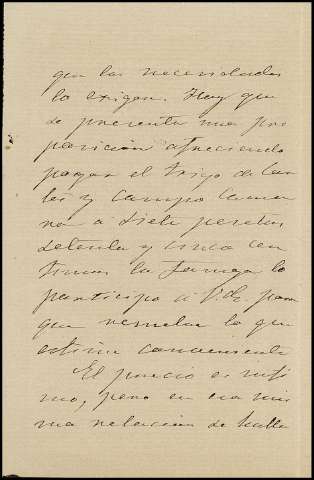 que las necesidades
lo exigen. Hoy que
se presenta una pro
posición ofreciendo
pagar el trigo de
les y campo
ra a siete pesetas
setenta y cinco cen
timos la fanega lo
participo a Vd. para
que resuelva lo que
estime conveniente
El precio es infi
mo, pero en esa mis
ma relación se halla